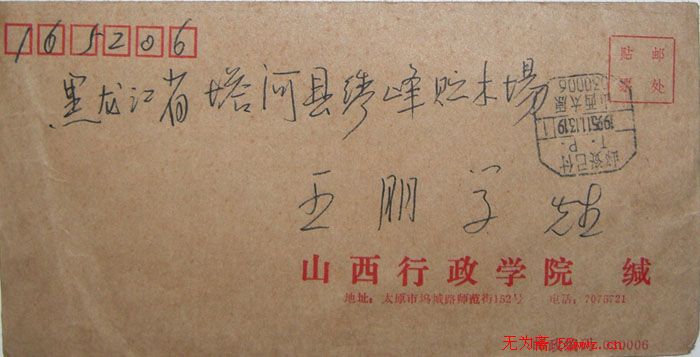 165206
贴 邮
票 处
黑龙江省塔河县绣峰贮木場
030006
山西太原
1995.11.13.19
T.P.
邮资已付
王朋学 先生
山西行政学院 缄
地址：太原市坞城路师范街152号 电话：7075721
无为斋
.cn
030006